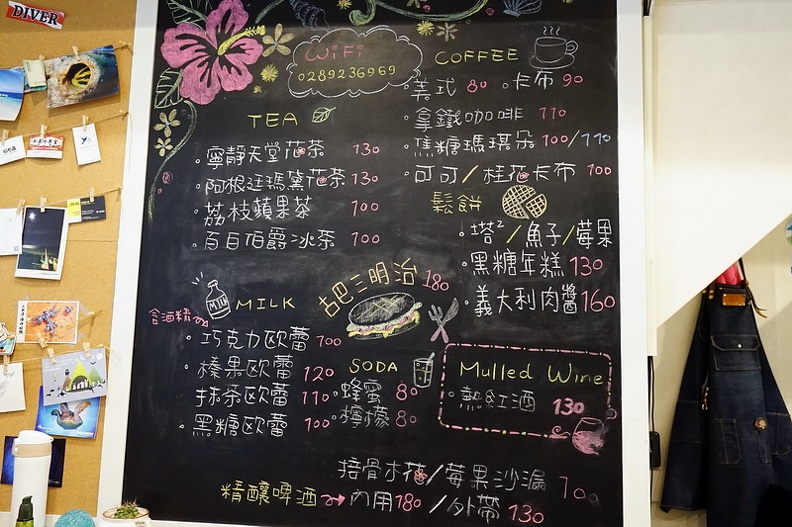 DIVER
WiFi
0289236969
TEA
寧靜天堂花茶 130
阿根廷瑪黛花茶 130
荔枝蘋果茶 100
百日伯爵冰茶 100
COFFEE
美式 80 卡布 90
拿鐵咖啡 110
焦糖瑪琪朵 100/110
可可/桂花卡布 100
鬆餅
塔塔/魚子/莓果
黑糖年糕 130
義大利肉醬 160
古巴三明治 180
MILK
MILK
含酒精
巧克力歐蕾 100
榛果歐蕾 120
抹茶歐蕾 110
黑糖歐蕾 100
SODA
蜂蜜 80
檸檬 80
Mulled Wine
熱紅酒 130
接骨木花/莓果沙漏 100
精釀啤酒 內用180/外帶130